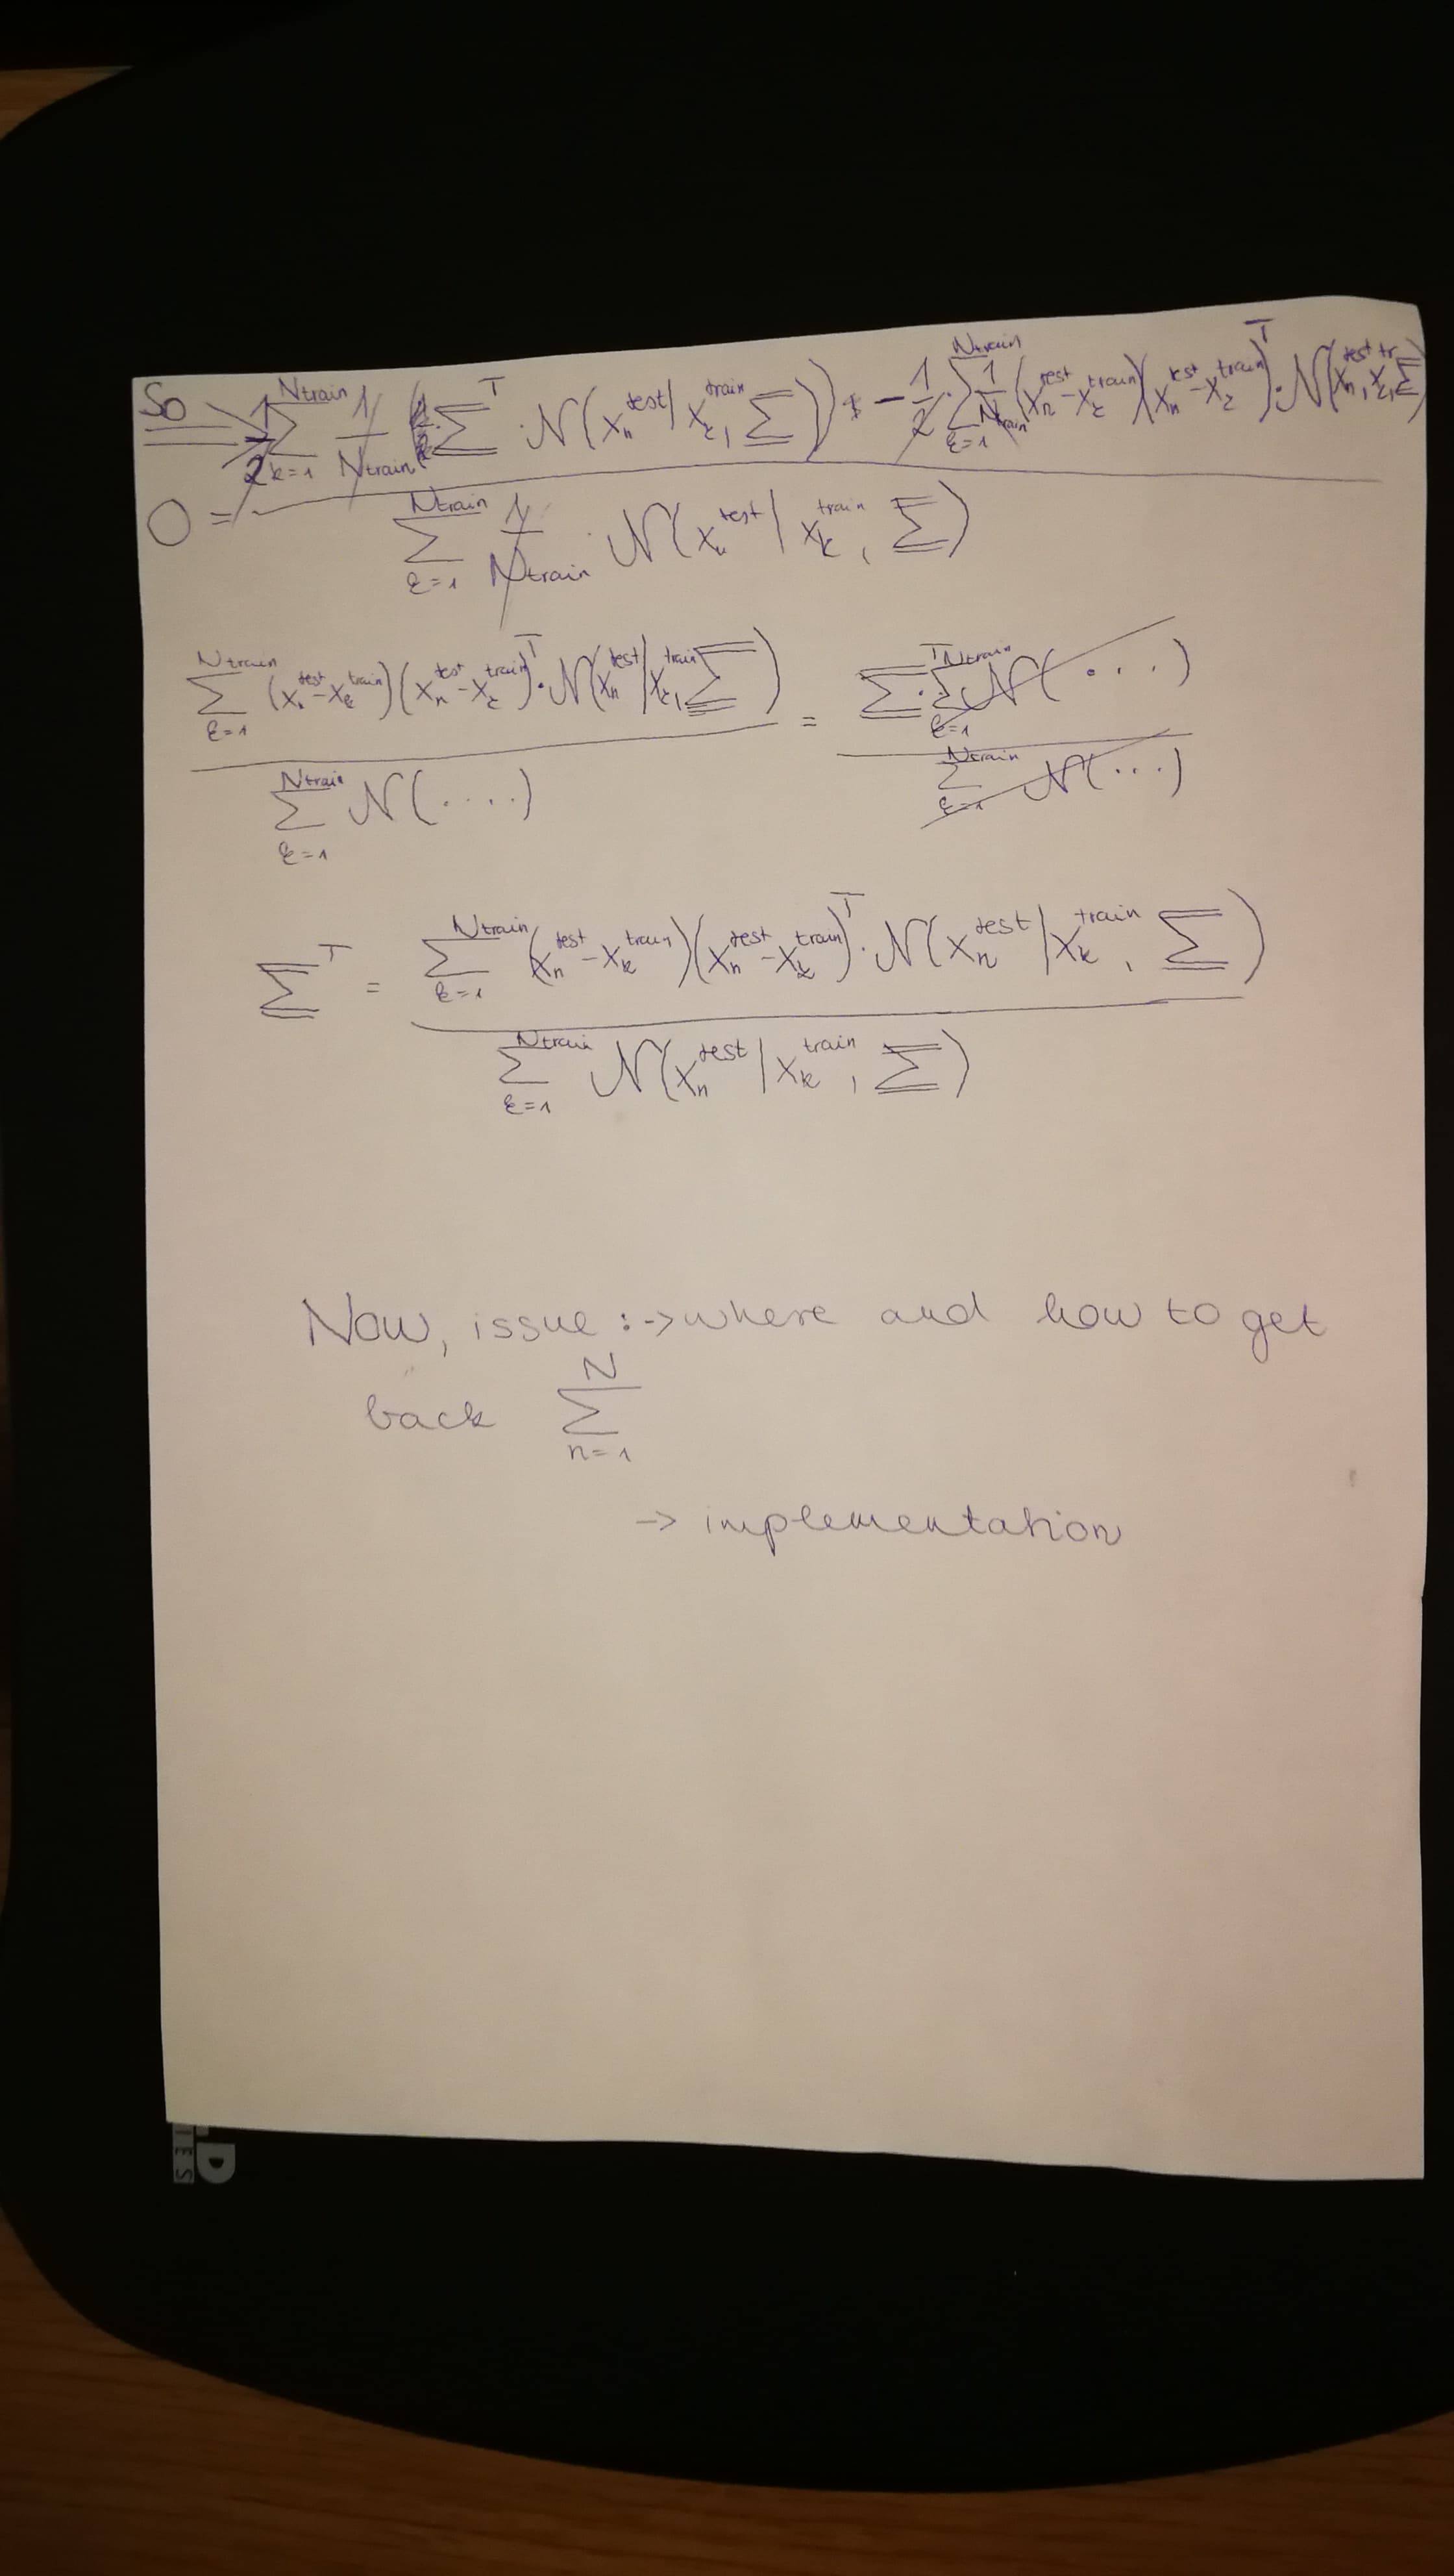 So => 1/2 Σ_{k=1}^{Ntrain} 1/Ntrain (Σ^T · N(x_n^test | x_k^train, Σ)) - 1/2 · Σ_{k=1}^{Ntrain} 1/Ntrain (x_n^test - x_k^train)(x_n^test - x_k^train)^T · N(x_n^test, x_k^tr, Σ)
0 = ――――――
Σ_{k=1}^{Ntrain} 1/Ntrain · N(x_n^test | x_k^train, Σ)
Σ_{k=1}^{Ntrain} (x_n^test - x_k^train)(x_n^test - x_k^train)^T · N(x_n^test | x_k^train, Σ) / Σ_{k=1}^{Ntrain} N(....) = Σ^T · Σ_{k=1}^{Ntrain} N(...) / Σ_{k=1}^{Ntrain} N(...)
Σ^T = Σ_{k=1}^{Ntrain} (x_n^test - x_k^train)(x_n^test - x_k^train)^T · N(x_n^test | x_k^train, Σ) / Σ_{k=1}^{Ntrain} N(x_n^test | x_k^train, Σ)
Now, issue :-> where and how to get
back Σ_{n=1}^{N}
-> implementation